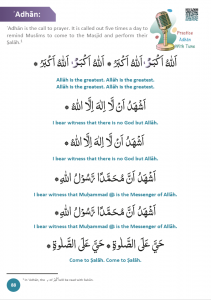 Adhān:
Adhān is the call to prayer. It is called out five times a day to
remind Muslims to come to the Masjid and perform their
Ṣalāh.¹
Practice
Adhān
With Tune
اَللّٰهُ اَكْبَرُ ۞ اَللّٰهُ اَكْبَرُ ۞ اَللّٰهُ اَكْبَرُ ۞ اَللّٰهُ اَكْبَرُ ۞
Allāh is the greatest. Allāh is the greatest.
Allāh is the greatest. Allāh is the greatest.
اَشْهَدُ اَنْ لَّا اِلٰهَ اِلَّا اللّٰهُ ۞
I bear witness that there is no God but Allāh.
اَشْهَدُ اَنْ لَّا اِلٰهَ اِلَّا اللّٰهُ ۞
I bear witness that there is no God but Allāh.
اَشْهَدُ اَنَّ مُحَمَّدًا رَّسُوْلُ اللّٰهِ ۞
I bear witness that Muḥammad ﷺ is the Messenger of Allāh.
اَشْهَدُ اَنَّ مُحَمَّدًا رَّسُوْلُ اللّٰهِ ۞
I bear witness that Muḥammad ﷺ is the Messenger of Allāh.
حَيَّ عَلَى الصَّلٰوةِ ۞ حَيَّ عَلَى الصَّلٰوةِ ۞
Come to Ṣalāh. Come to Ṣalāh.